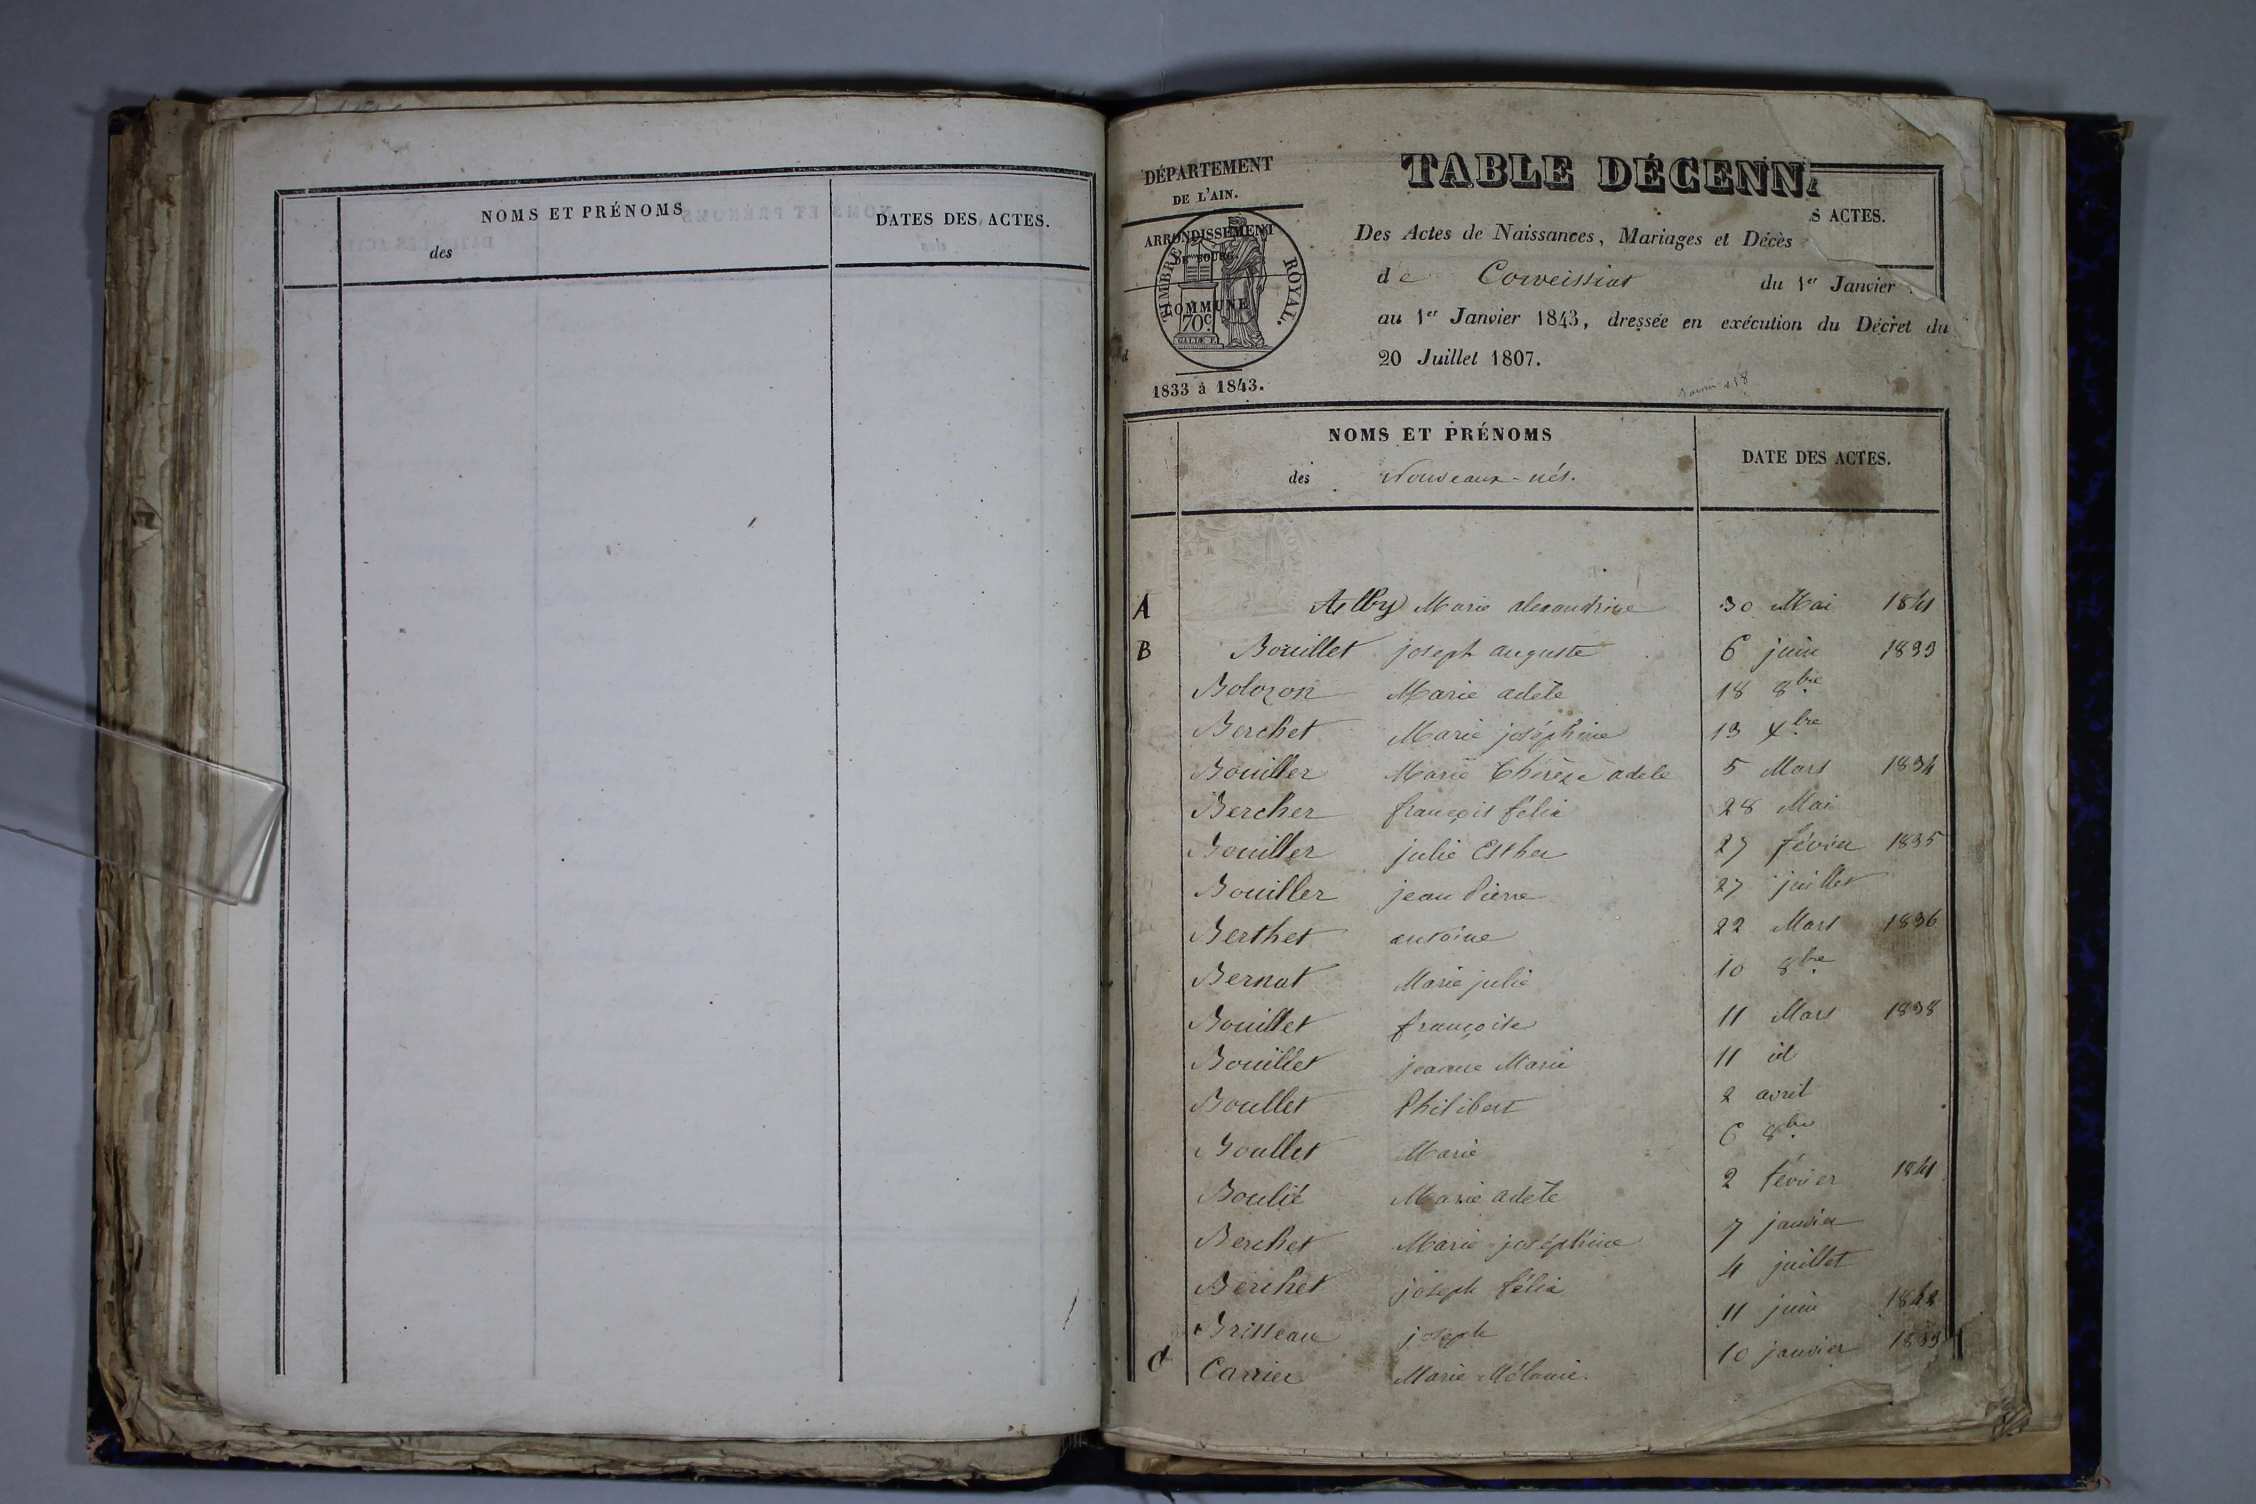 NOMS ET PRÉNOMS
des
DATES DES ACTES.
DÉPARTEMENT
DE L'AIN.
ARRONDISSEMENT
DE BOURG.
COMMUNE
d
TIMBRE ROYAL.
70c
1833 à 1843.
TABLE DÉCENN
S ACTES.
Des Actes de Naissances, Mariages et Décès
de Corveissiat du 1er Janvier
au 1er Janvier 1843, dressée en exécution du Décret du
20 Juillet 1807.
NOMS ET PRÉNOMS
des Nouveaux-nés.
DATE DES ACTES.
A Marie alexandrine 30 Mai 1841
B Bouillet joseph auguste 6 juin 1833
Bolozon Marie adèle 18 8bre
Berchet Marie joséphine 13 Xbre
Bouiller Marie Thérèze adele 5 Mars 1834
Bercher françois félix 28 Mai
Bouiller julie Esther 27 février 1835
Bouiller jean Pierre 27 juillet
Berthet antoine 22 Mars 1836
Bernat Marie julie 10 8bre
Bouillet françoise 11 Mars 1838
Bouillet jeanne Marie 11 id
Boullet Philibert 2 avril
Boullet Marie 6 8bre
Boulié Marie adèle 2 février 1841
Berchet Marie joséphine 7 janvier
Berchet joseph félix 4 juillet
Brisseau joseph 11 juin 1842
C Carrier Marie Mélanie. 10 janvier 1833